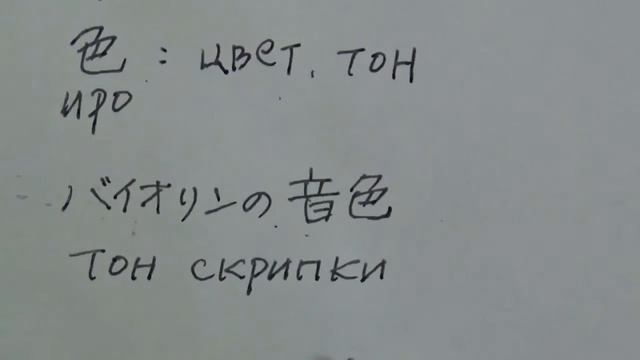 色 : цвет. тон
иро
バイオリンの音色
тон скрипки